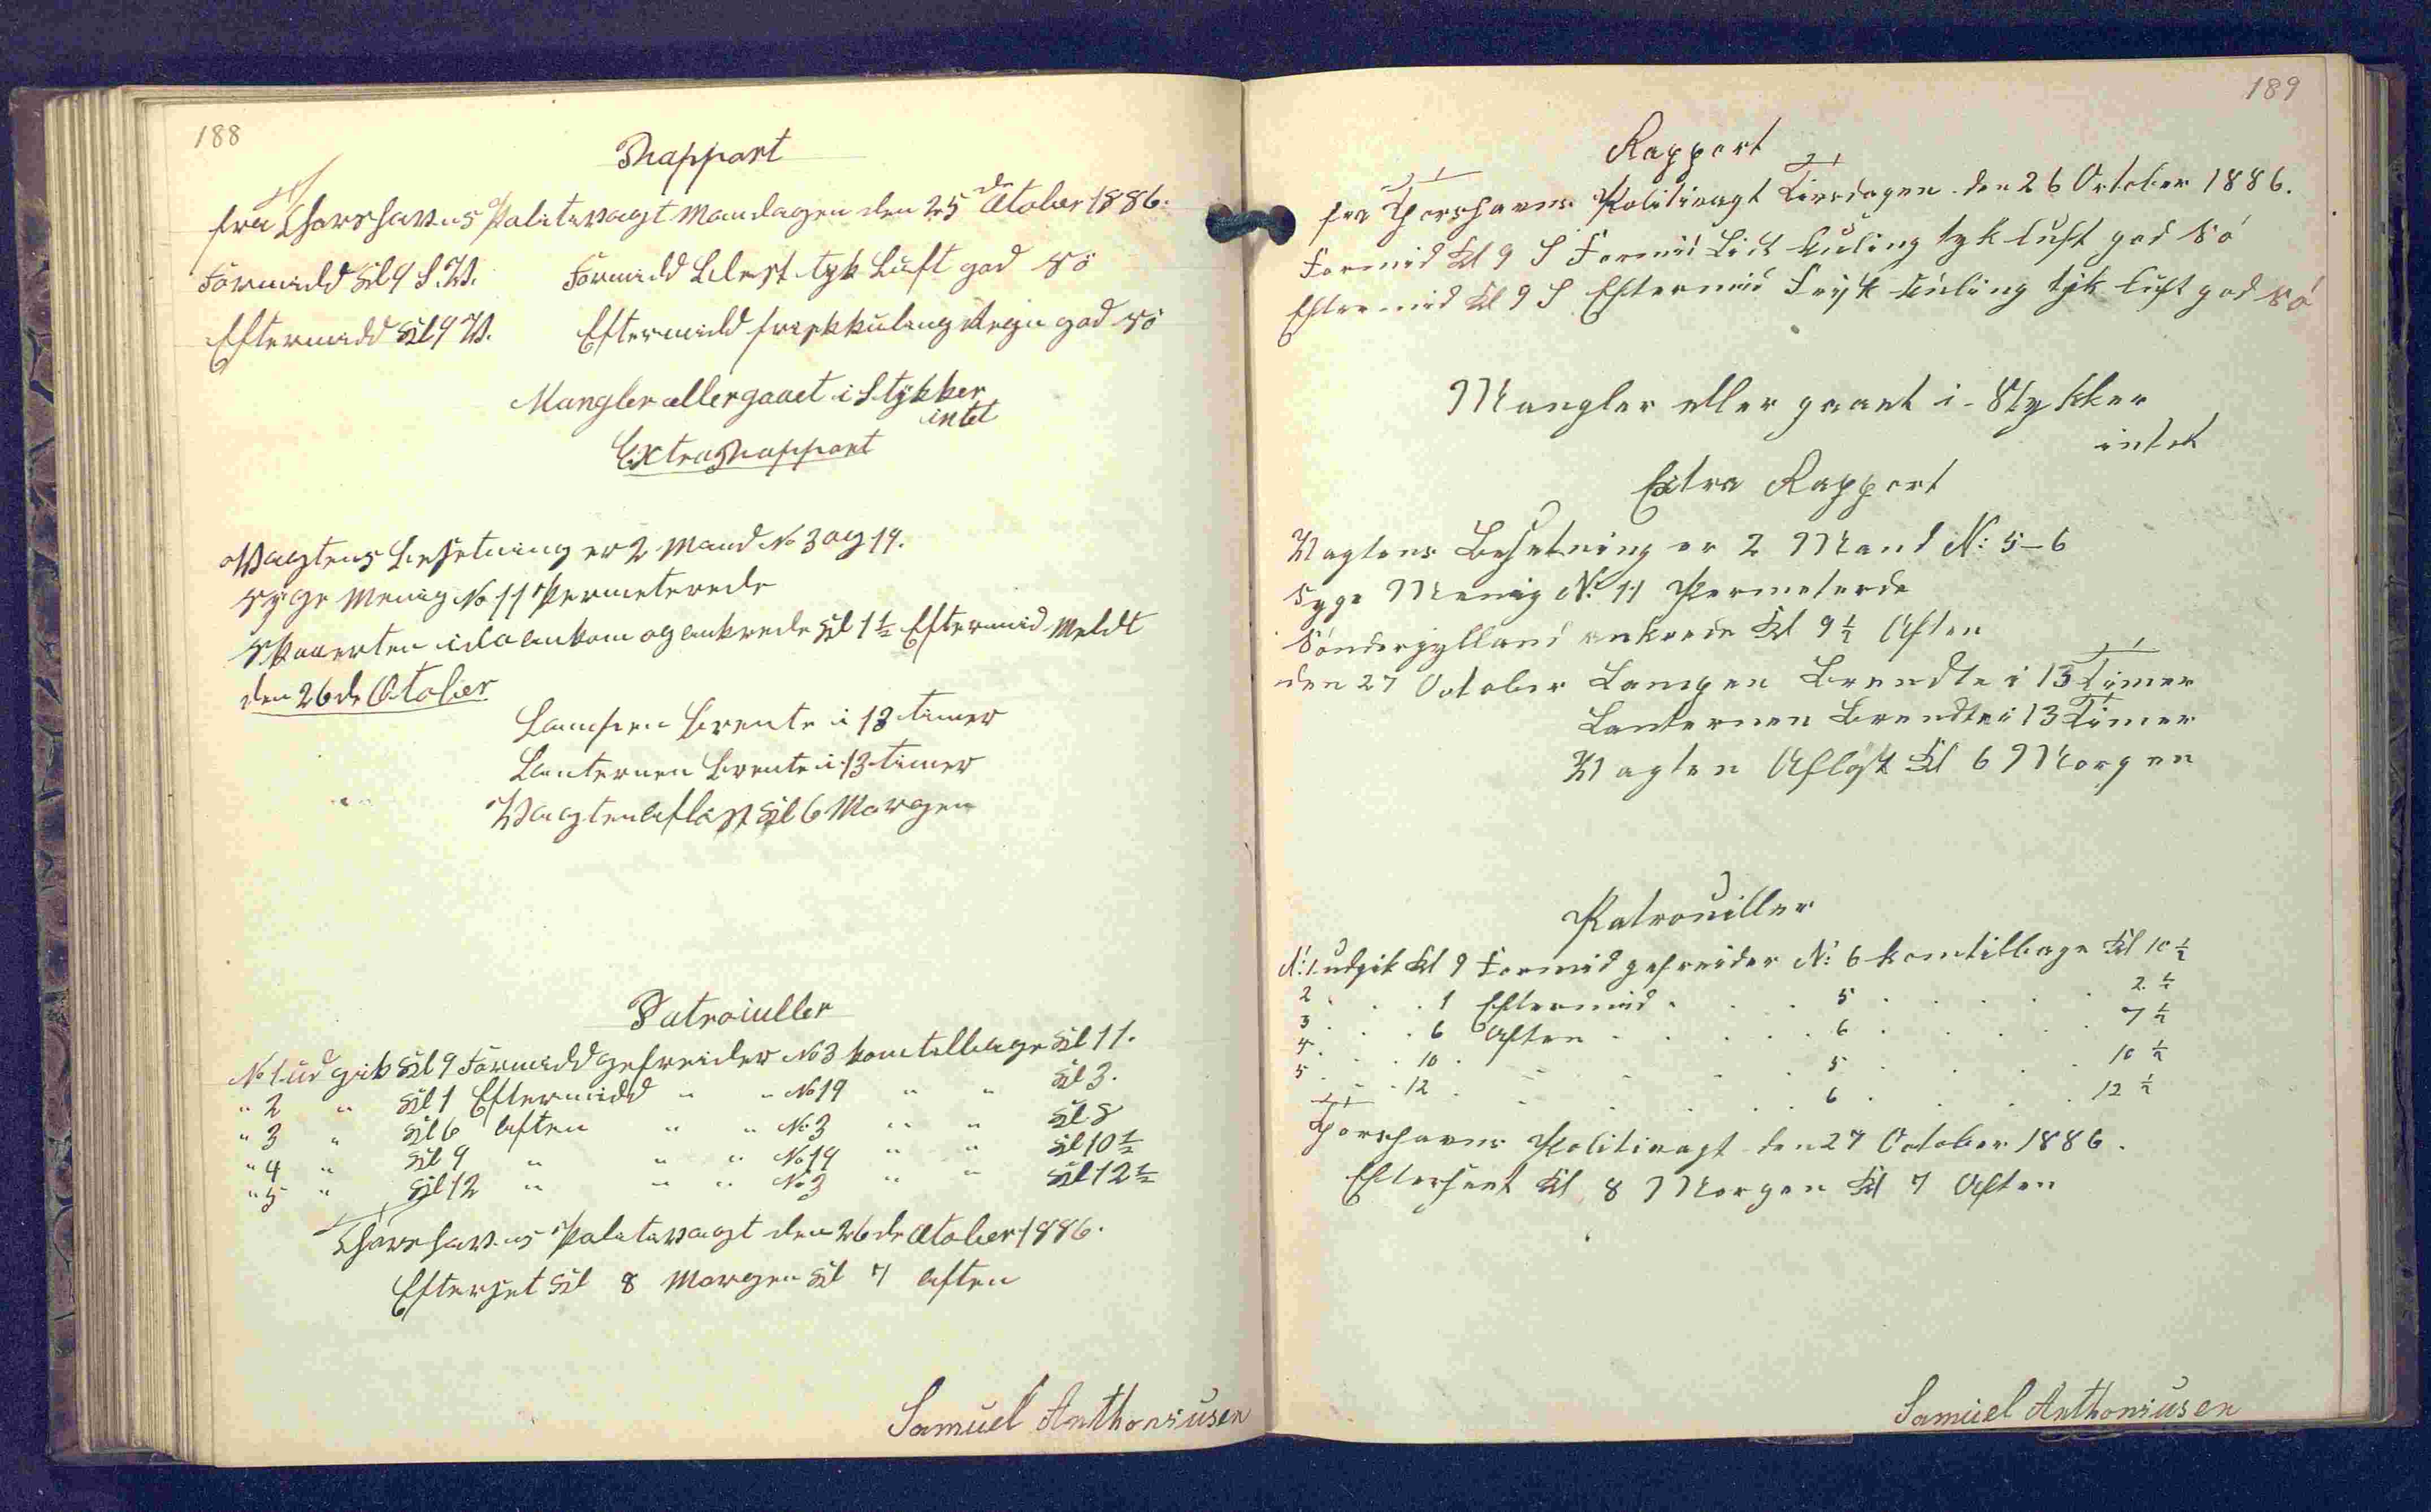 188
Rapport
fra Thorshavns Politivagt Mandagen den 25de Otober 1886.
Formidd Kl 9 S.V. Formidd Blest tyk Luft god Sö
Eftermidd Kl 9 V. Eftermidd friskkuling Regn god Sö
Mangler eller gaaet i Stykker
intet
Extra Rapport
Vagtens Besetning er 2 Mand No 3 og 19.
Syge Menig No 11 Permeterede
ankom og ankrede Kl 1½ Eftermid Meldt
den 26de Otober
Lampen Brente i 13 timer
Lanternen Brente i 13 timer
Vagten Aflöst Kl 6 Morgen
Patrouller
No 1 ud gik Kl 9 Formidd gefreider No 3 kom tilbage Kl 11.
" 2 " Kl 1 Eftermidd " " No 19 " " Kl 3.
" 3 " Kl 6 Aften " " No 3 " " Kl 8
" 4 " Kl 9 " " " No 19 " " Kl 10½
" 5 " Kl 12 " " " No 3 " " Kl 12½
Thorshavns Politivagt den 26de Otober 1886.
Efterset Kl 8 Morgen Kl 7 Aften
Samuel Anthoniusen
189
Rapport
fra Thorshavns Politivagt Tirsdagen den 26 October 1886.
Formid Kl 9 S Formid Lidt Kuling tyk Luft god Sö
Eftermid Kl 9 S Eftermid Frisk Kuling tyk Luft god Sö
Mangler eller gaaet i Stykker
intet
Extra Rapport
Vagtens Besetning er 2 Mand N: 5-6
Syge Menig N: 11 Permeterde
Sönderjylland ankrede Kl 9½ Aften
den 27 October Lampen Brendte i 13 Timer
Lanternen Brendte i 13 Timer
Vagten Aflöst Kl 6 Morgen
Patrouiller
N: 1 udgik Kl 9 Formid gefreider N: 6 kom tilbage Kl 10½
2 . . . 1 Eftermid . . . 5 . . . . 2½
3 . . . 6 Aften . . . . 6 . . . . 7½
4 . . . 10 . . . . . 5 . . . . 10½
5 . . . 12 . . . . . 6 . . . . 12½
Thorshavns Politivagt den 27 October 1886.
Efterseet Kl 8 Morgen Kl 7 Aften
Samuel Anthoniusen